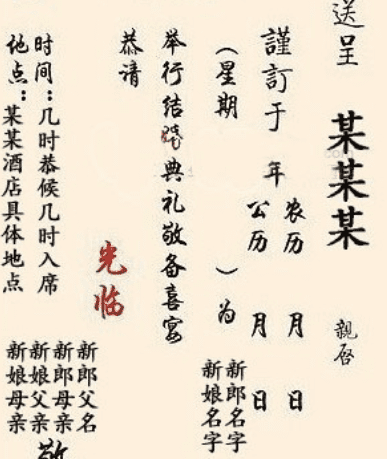 送呈 某某某 親启
謹訂于 年 农历 月 日
公历 月 日
（星期 ）为
新郎名字
新娘名字
举行结婚典礼敬备喜宴
恭请
光临
新郎父名
新郎母亲
新娘父亲
新娘母亲
敬
时间：几时恭候几时入席
地点：某某酒店具体地点